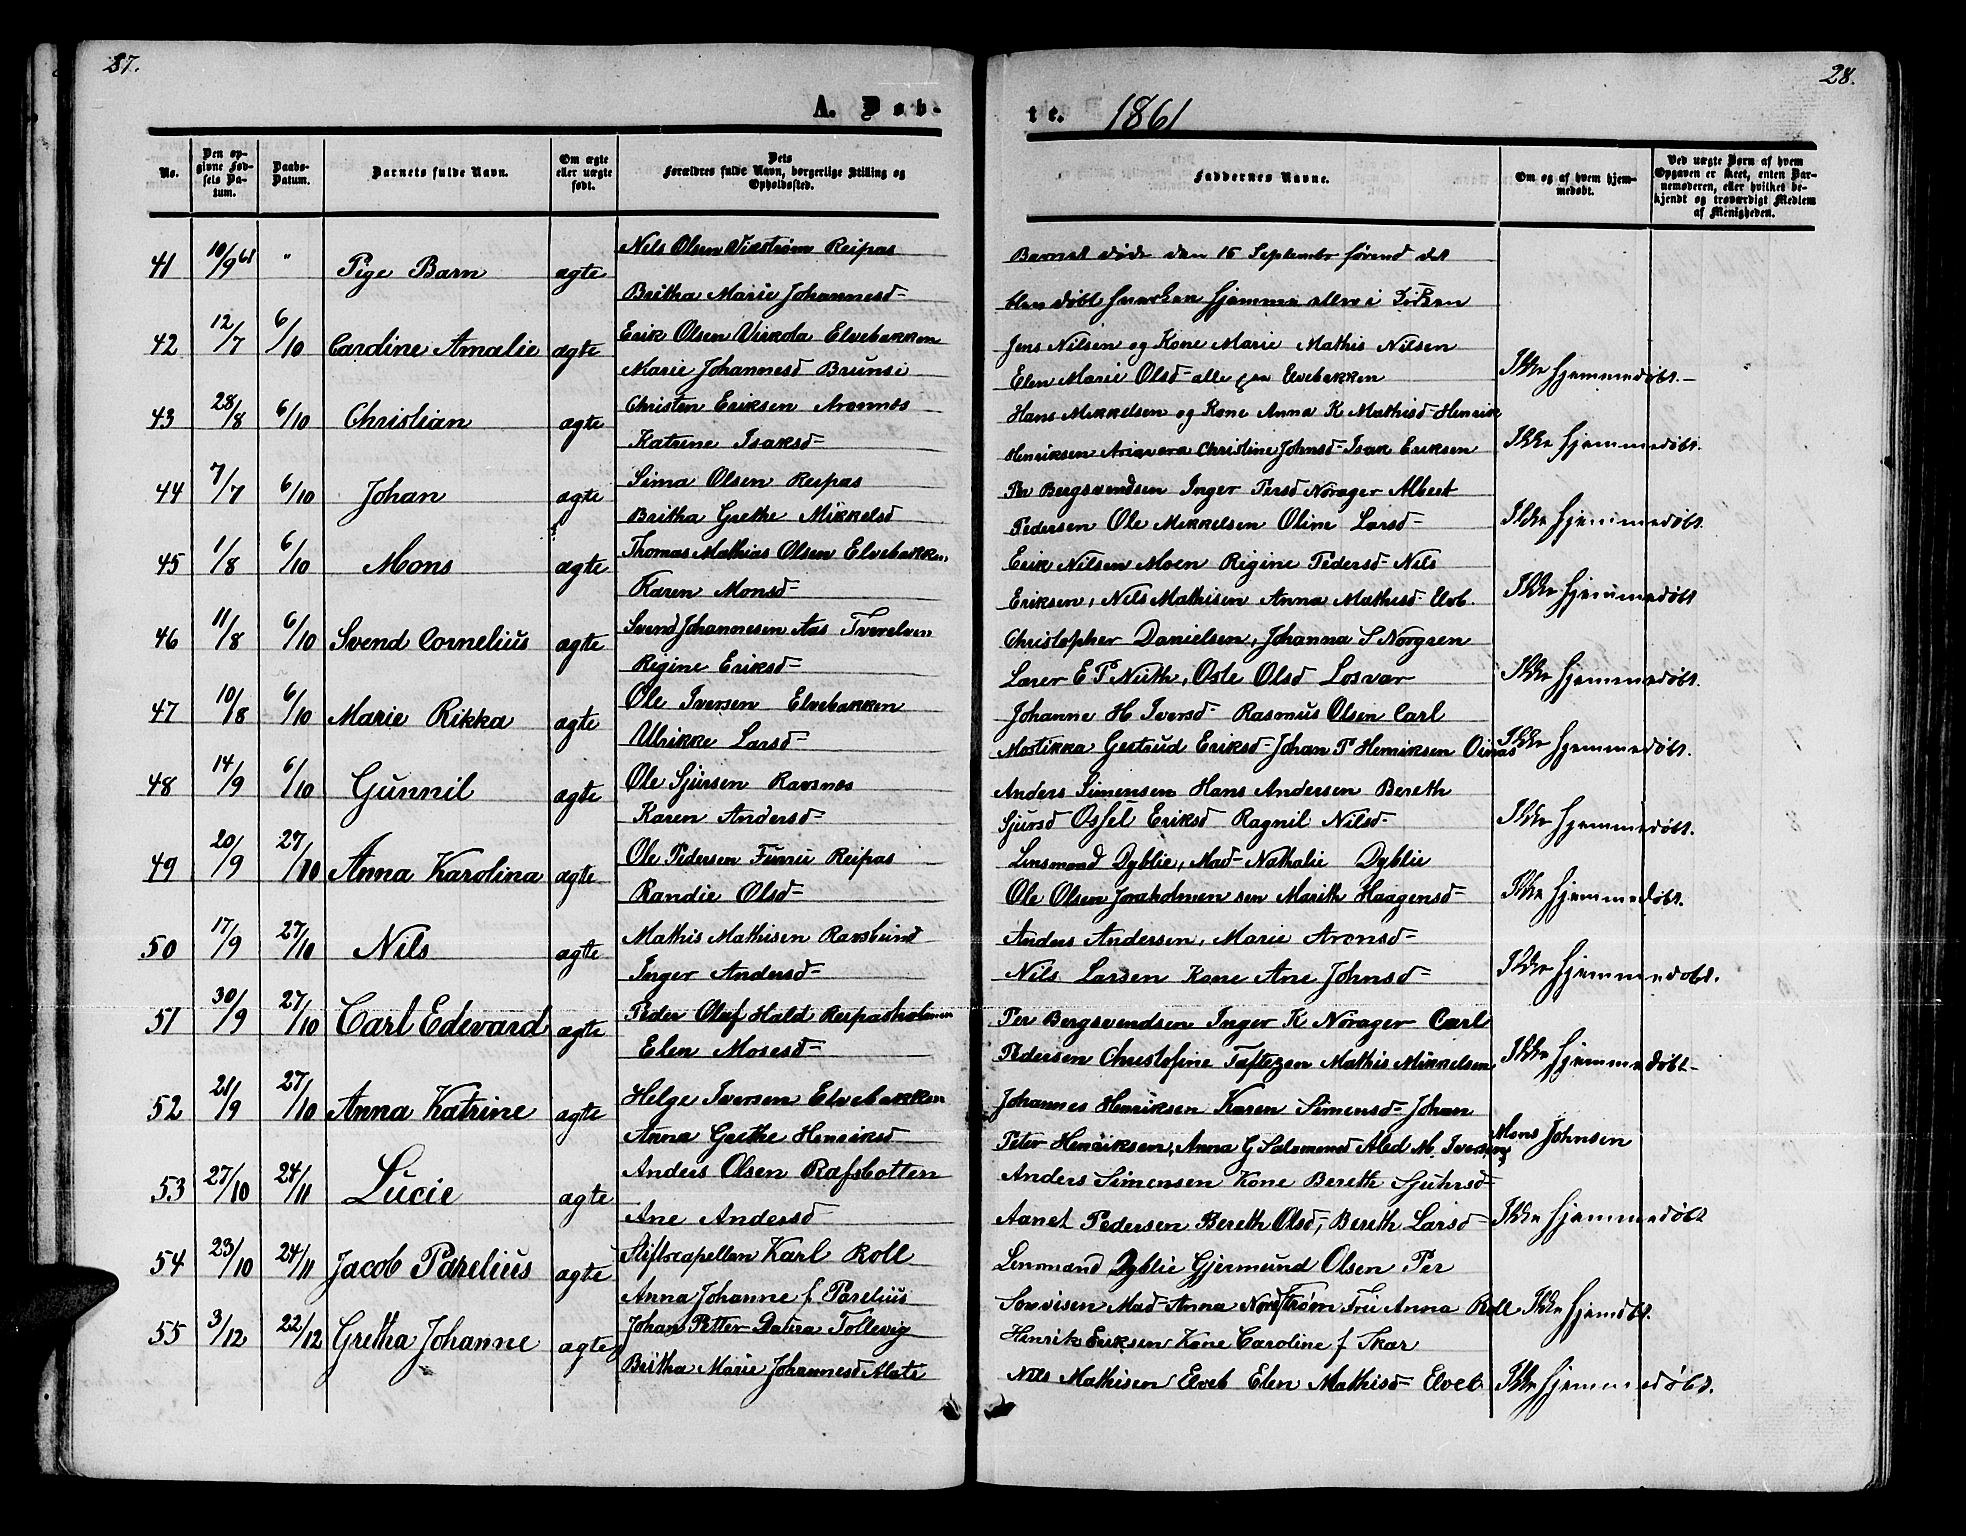 27.
28.
A. Døb-
te. 1861
No.
Den opgivne Fødsels Datum.
Daabs-Datum.
Barnets fulde Navn.
Om ægte eller uægte født.
Dets Forældres fulde Navn, borgerlige Stilling og Opholdssted.
Faddernes Navne.
Om og af hvem hjemmedøbt.
Ved uægte Børn af hvem Opgaven er skeet, enten Barnemoderen, eller hvilket bekjendt og troværdigt Medlem af Menigheden.
41 10/9 61 " Pige Barn ægte Nils Olsen Vikstrøm Reipas
Britha Marie Johannesd-
Barnet døde den 15 September førend det
blev døbt hverken hjemme eller i Kirken
42 12/7 6/10 Cardine Amalie ægte Erik Olsen Virkola Elvebakken
Marie Johannesd Brunsi
Jens Nilsen og Kone Marie Mathis Nilsen
Elen Marie Olsd- alle paa Elvebakken
Ikke hjemmedøbt.-
43 28/8 6/10 Christian ægte Christen Eriksen Aronnes
Katrine Isaksd-
Hans Mikkelsen og Kone Anna K Mathisd- Henrik
Henriksen Christine Johnsd- Isak Eriksen
Ikke hjemmedøbt.
44 7/7 6/10 Johan ægte Sima Olsen Reipas
Britha Grethe Mikkelsd
Per Bergsvendsen Inger Persd Norager Albert
Pedersen Ole Mikkelsen Oline Larsd-
Ikke hjemmedøbt.
45 1/8 6/10 Mons ægte Thomas Mathias Olsen Elvebakken
Karen Monsd-
Erik Nilsen Moen Regine Pedersd- Nils
Eriksen, Nils Mathisen Anna Mathisd- Elvb.
Ikke hjemmedøbt
46 11/8 6/10 Svend Cornelius ægte Svend Johannesen Aas Tverelven
Regine Eriksd-
Christopher Danielsen, Johanna S Norgren
Lærer E P Nuth, Osle Olsd Losvar
Ikke hjemmedøbt.
47 10/8 6/10 Marie Rikka ægte Ole Iversen Elvebakken
Ulrikke Larsd-
Johanne H Iversd- Rasmus Olsen Carl
Mostikka Gertrud Eriksd- Johan P Henriksen Oinas
Ikke hjemmedøbt.
48 14/9 6/10 Gunnil ægte Ole Sjursen Ravnnes
Karen Andersd-
Anders Simensen Hans Andersen Bereth
Sjursd Ossel Eriksd Ragnil Nilsd-
Ikke hjemmedøbt.
49 20/9 27/10 Anna Karolina ægte Ole Pedersen Furru Reipas
Randie Olsd-
Lensmand Dyblie, Mad- Nathalie Dyblie
Ole Olsen Joraholmen sen Marith Haagensd-
Ikke hjemmedøbt.
50 17/9 27/10 Nils ægte Mathis Mathisen Ravsbund
Inger Andersd-
Anders Andersen, Marie Aronsd-
Nils Larsen Kone Ane Johnsd-
Ikke hjemmedøbt.
51 30/9 27/10 Carl Edevard ægte Peder Oluf Hald Reipasholmen
Elen Mosesd-
Per Bergsvendsen Inger K Norager Carl
Pedersen Christofine Taftezen Mathis Mikkelsen
Ikke hjemmedøbt-
52 21/9 27/10 Anna Katrine ægte Helge Iversen Elvebakken
Anna Grethe Henriksd
Johannes Henriksen Karen Simensd- Johan
Peter Henriksen, Anna G Salomonsd Aled M. Iversens
Mons Johnsen
53 27/10 24/11 Lucie ægte Anders Olsen Rafsbotten
Ane Andersd-
Anders Simensen Kone Berethe Sjuhrsd-
Aanet Pedersen Bereth Olsd, Bereth Larsd-
Ikke hjemmedøbt
54 23/10 24/11 Jacob Parelius ægte Stiftscapellan Karl Roll
Anna Johanne f Parelius
Lensmand Dyblie Gjermund Olsen Per
Sorvisen Mad- Anna Nordstrøm Fru Anna Roll
Ikke hjemdøbt.
55 3/12 22/12 Gretha Johanne ægte Johan Petter Datera Tollevig
Britha Marie Johannesd Alate
Henrik Eriksen Kone Caroline f Skar
Nils Mathisen Elveb Elen Mathisd- Elveb
Ikke hjemmedøbt.